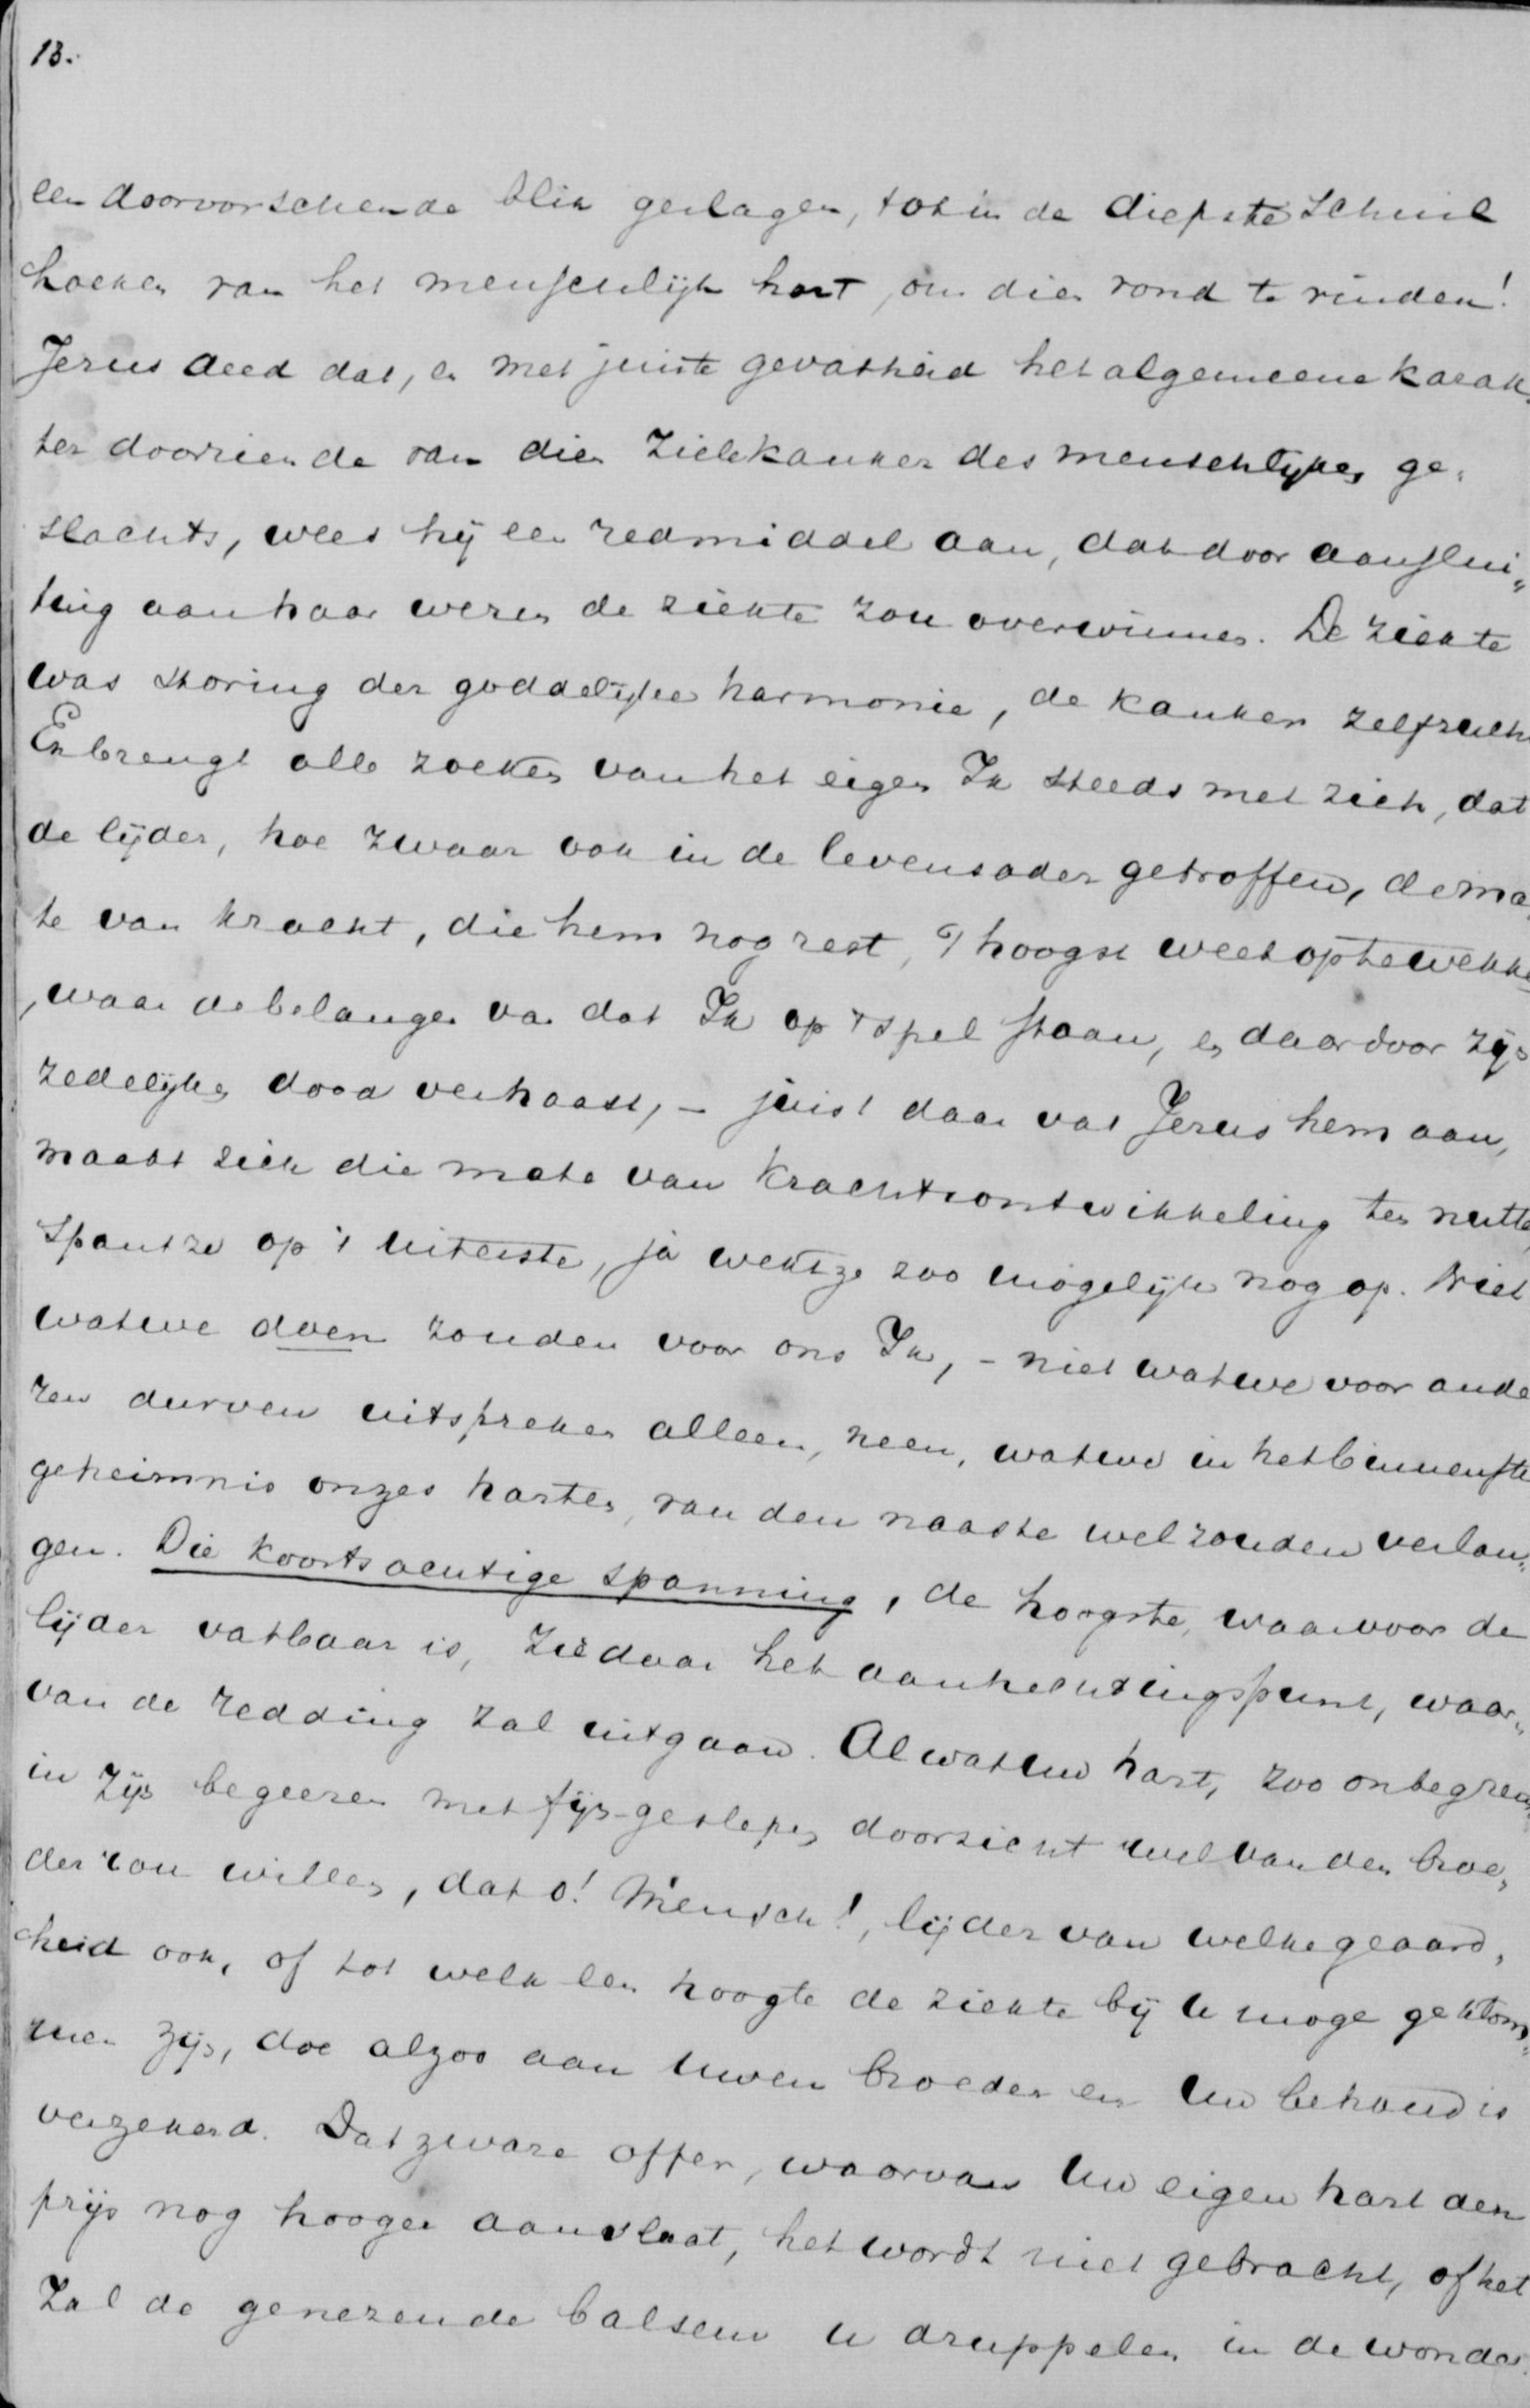 13.
een doorvorschende blik geslagen, tot in de diepste schuil
hoeken van het menschelijk hart, om dien rond te vinden!
Jezus deed dat, en met juiste gevatheid het algemeene karak„
ter doorziende van dien zielekanker des menschelijken ge„
slachts, wees hij een redmiddel aan, dat door aanslui„
ting aan haar wezen de ziekte zou overwinnen. De ziekte
was storing der goddelijke harmonie, de kanker zelfzucht
En brengt alle zoeken van het eigen Ik steeds met zich, dat
de lijder, hoe zwaar ook in de levensader getroffen, de ma
te van kracht, die hem nog rest, 't hoogst weet op te wekken
, waar de belangen van dat Ik op 't spel staan, en daardoor zijn
zedelijken dood verhaast, – juist daar vat Jezus hem aan,
maakt zich die mate van krachtsontwikkeling ten nutte,
spant ze op 't uiterste, ja wekt ze zoo mogelijk nog op. Niet
wat we doen zouden voor ons Ik, – niet wat we voor ande
ren durven uitspreken alleen, neen, wat we in het binnenste
geheimnis onzes harten, van den naaste wel zouden verlan„
gen. Die koortsachtige spanning, de hoogste, waarvoor de
lijder vatbaar is, ziedaar het aanhechtingspunt, waar„
van de redding zal uitgaan. Al wat uw hart, zoo onbegrensd
in zijn begeeren met fijn-geslepen doorzicht wel van den broe„
der zou willen, dat o! Mensch!, lijder van welke geaard„
heid ook, of tot welk een hoogte de ziekte bij U moge gekom„
men zijn, doe alzoo aan Uwen broeder en Uw behoud is
verzekerd. Dat zware offer, waarvan Uw eigen hart den
prijs nog hooger aanslaat, het wordt niet gebracht, of het
Zal de genezende balsem U druppelen in de wonde.